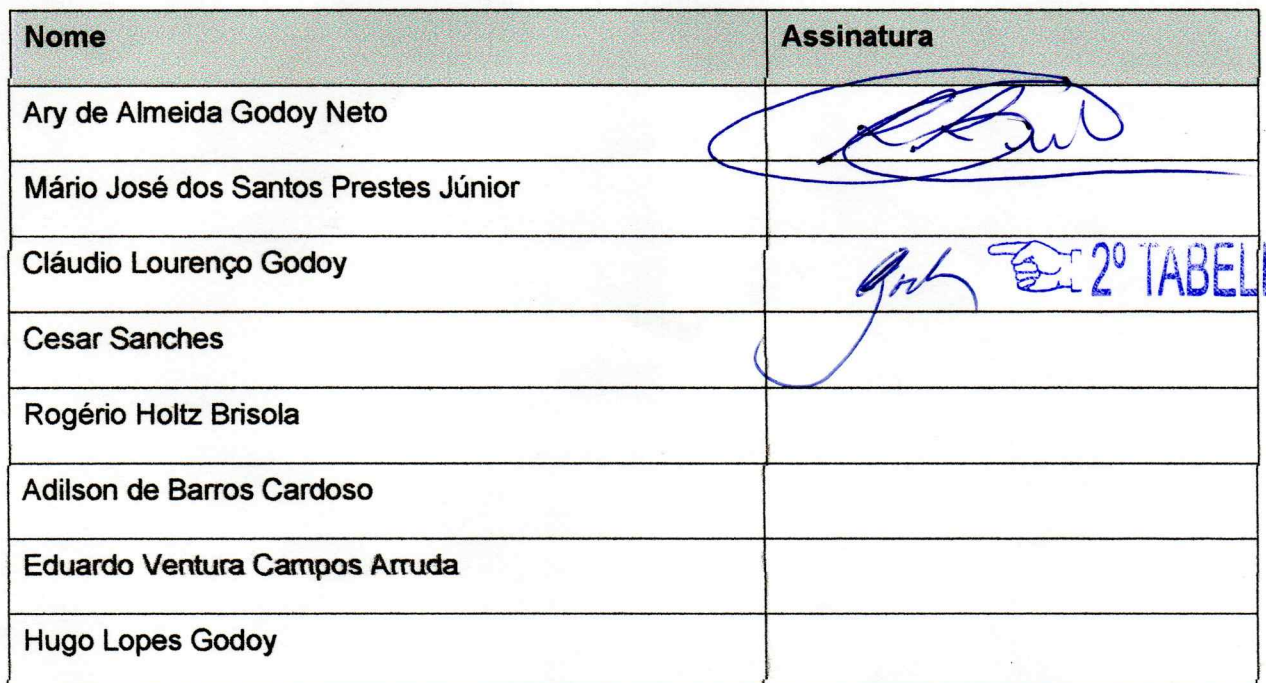 Nome Assinatura
Ary de Almeida Godoy Neto
Mário José dos Santos Prestes Júnior
Cláudio Lourenço Godoy 2º TABELI
Cesar Sanches
Rogério Holtz Brisola
Adilson de Barros Cardoso
Eduardo Ventura Campos Arruda
Hugo Lopes Godoy